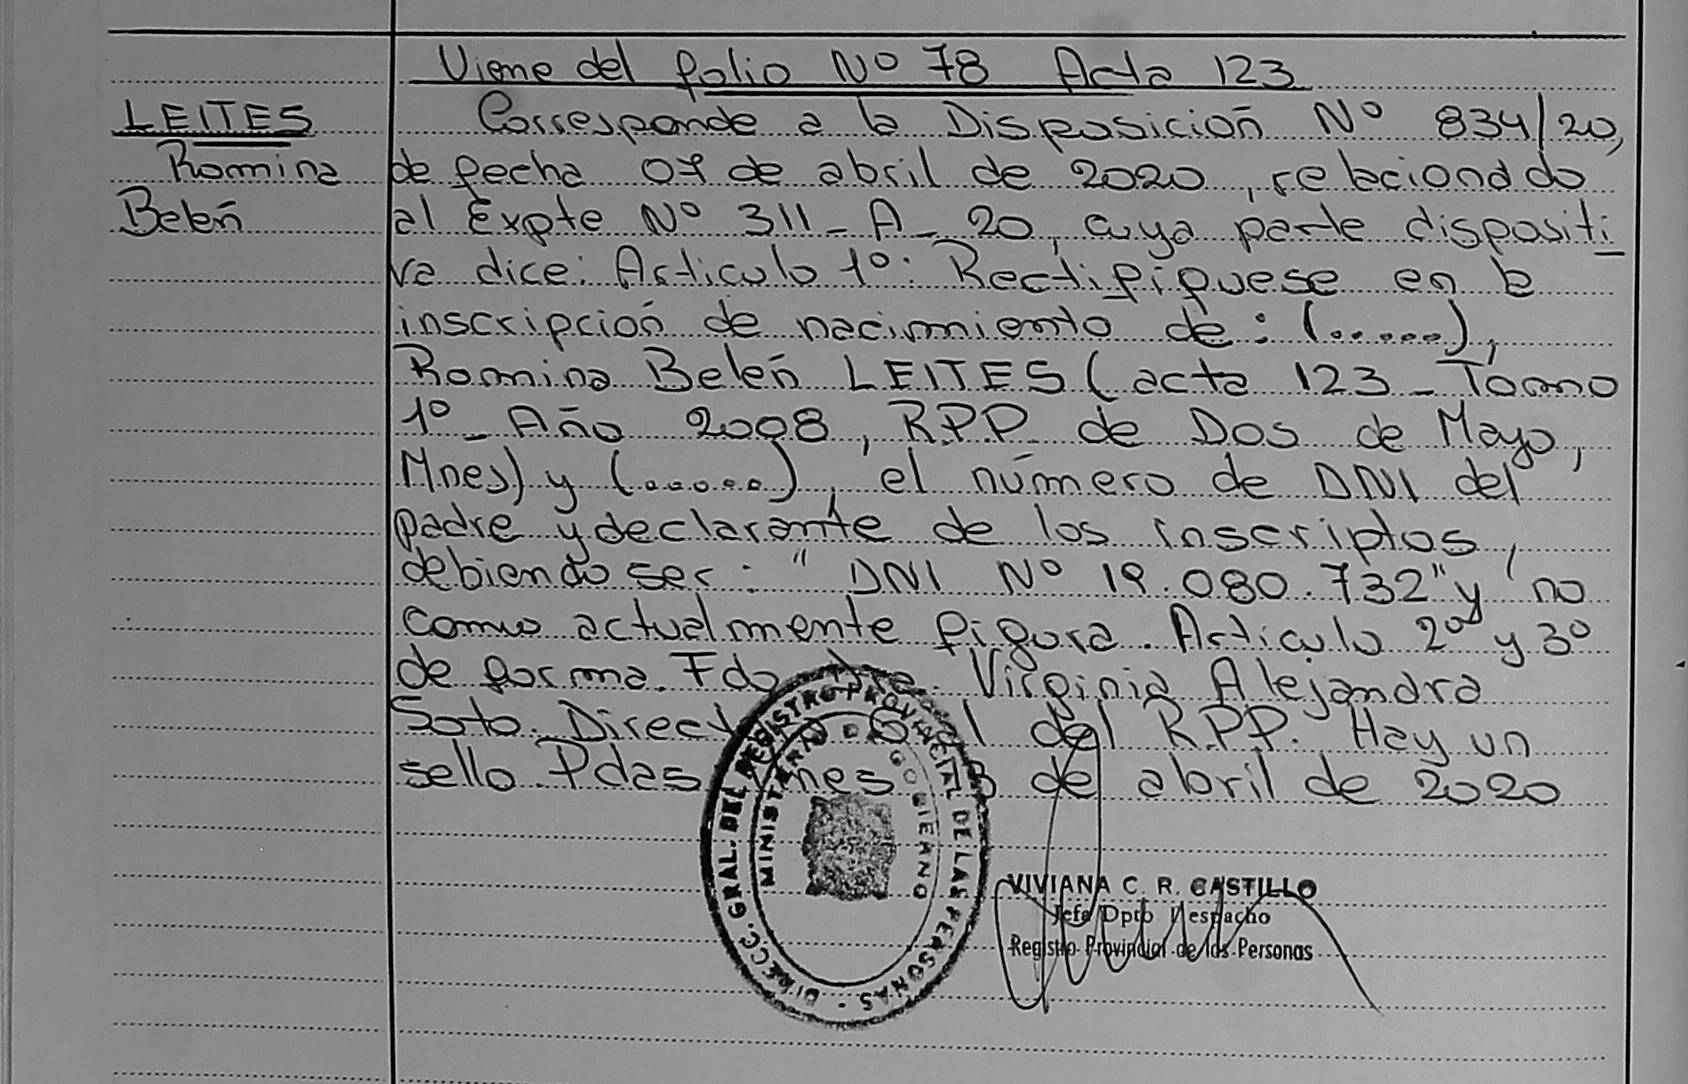 Viene del folio Nº 78 Acta 123
LEITES
Romina
Belén
Corresponde a la Disposición Nº 834/20,
de fecha 07 de abril de 2020, relacionado
al Expte Nº 311-A-20, cuya parte dispositi
va dice: Articulo 1º: Rectifíquese en la
inscripción de nacimiento de: (......),
Romina Belén LEITES (acta 123 - Tomo
1º - Año 2008, R.P.P. de Dos de Mayo,
Mnes) y (......), el número de DNI del
padre y declarante de los inscriptos,
debiendo ser: "DNI Nº 19.080.732" y no
como actualmente figura. Articulo 2º y 3º
de forma. Fdo Virginia Alejandra
Soto. del R.P.P. Hay un
sello. Pdas Mnes 13 de abril de 2020
DIRECC. GRAL. DEL REGISTRO PROVINCIAL DE LAS PERSONAS
MINISTERIO DE GOBIERNO
VIVIANA C. R. CASTILLO
Jefe Dpto Despacho
Registro Provincial de las Personas